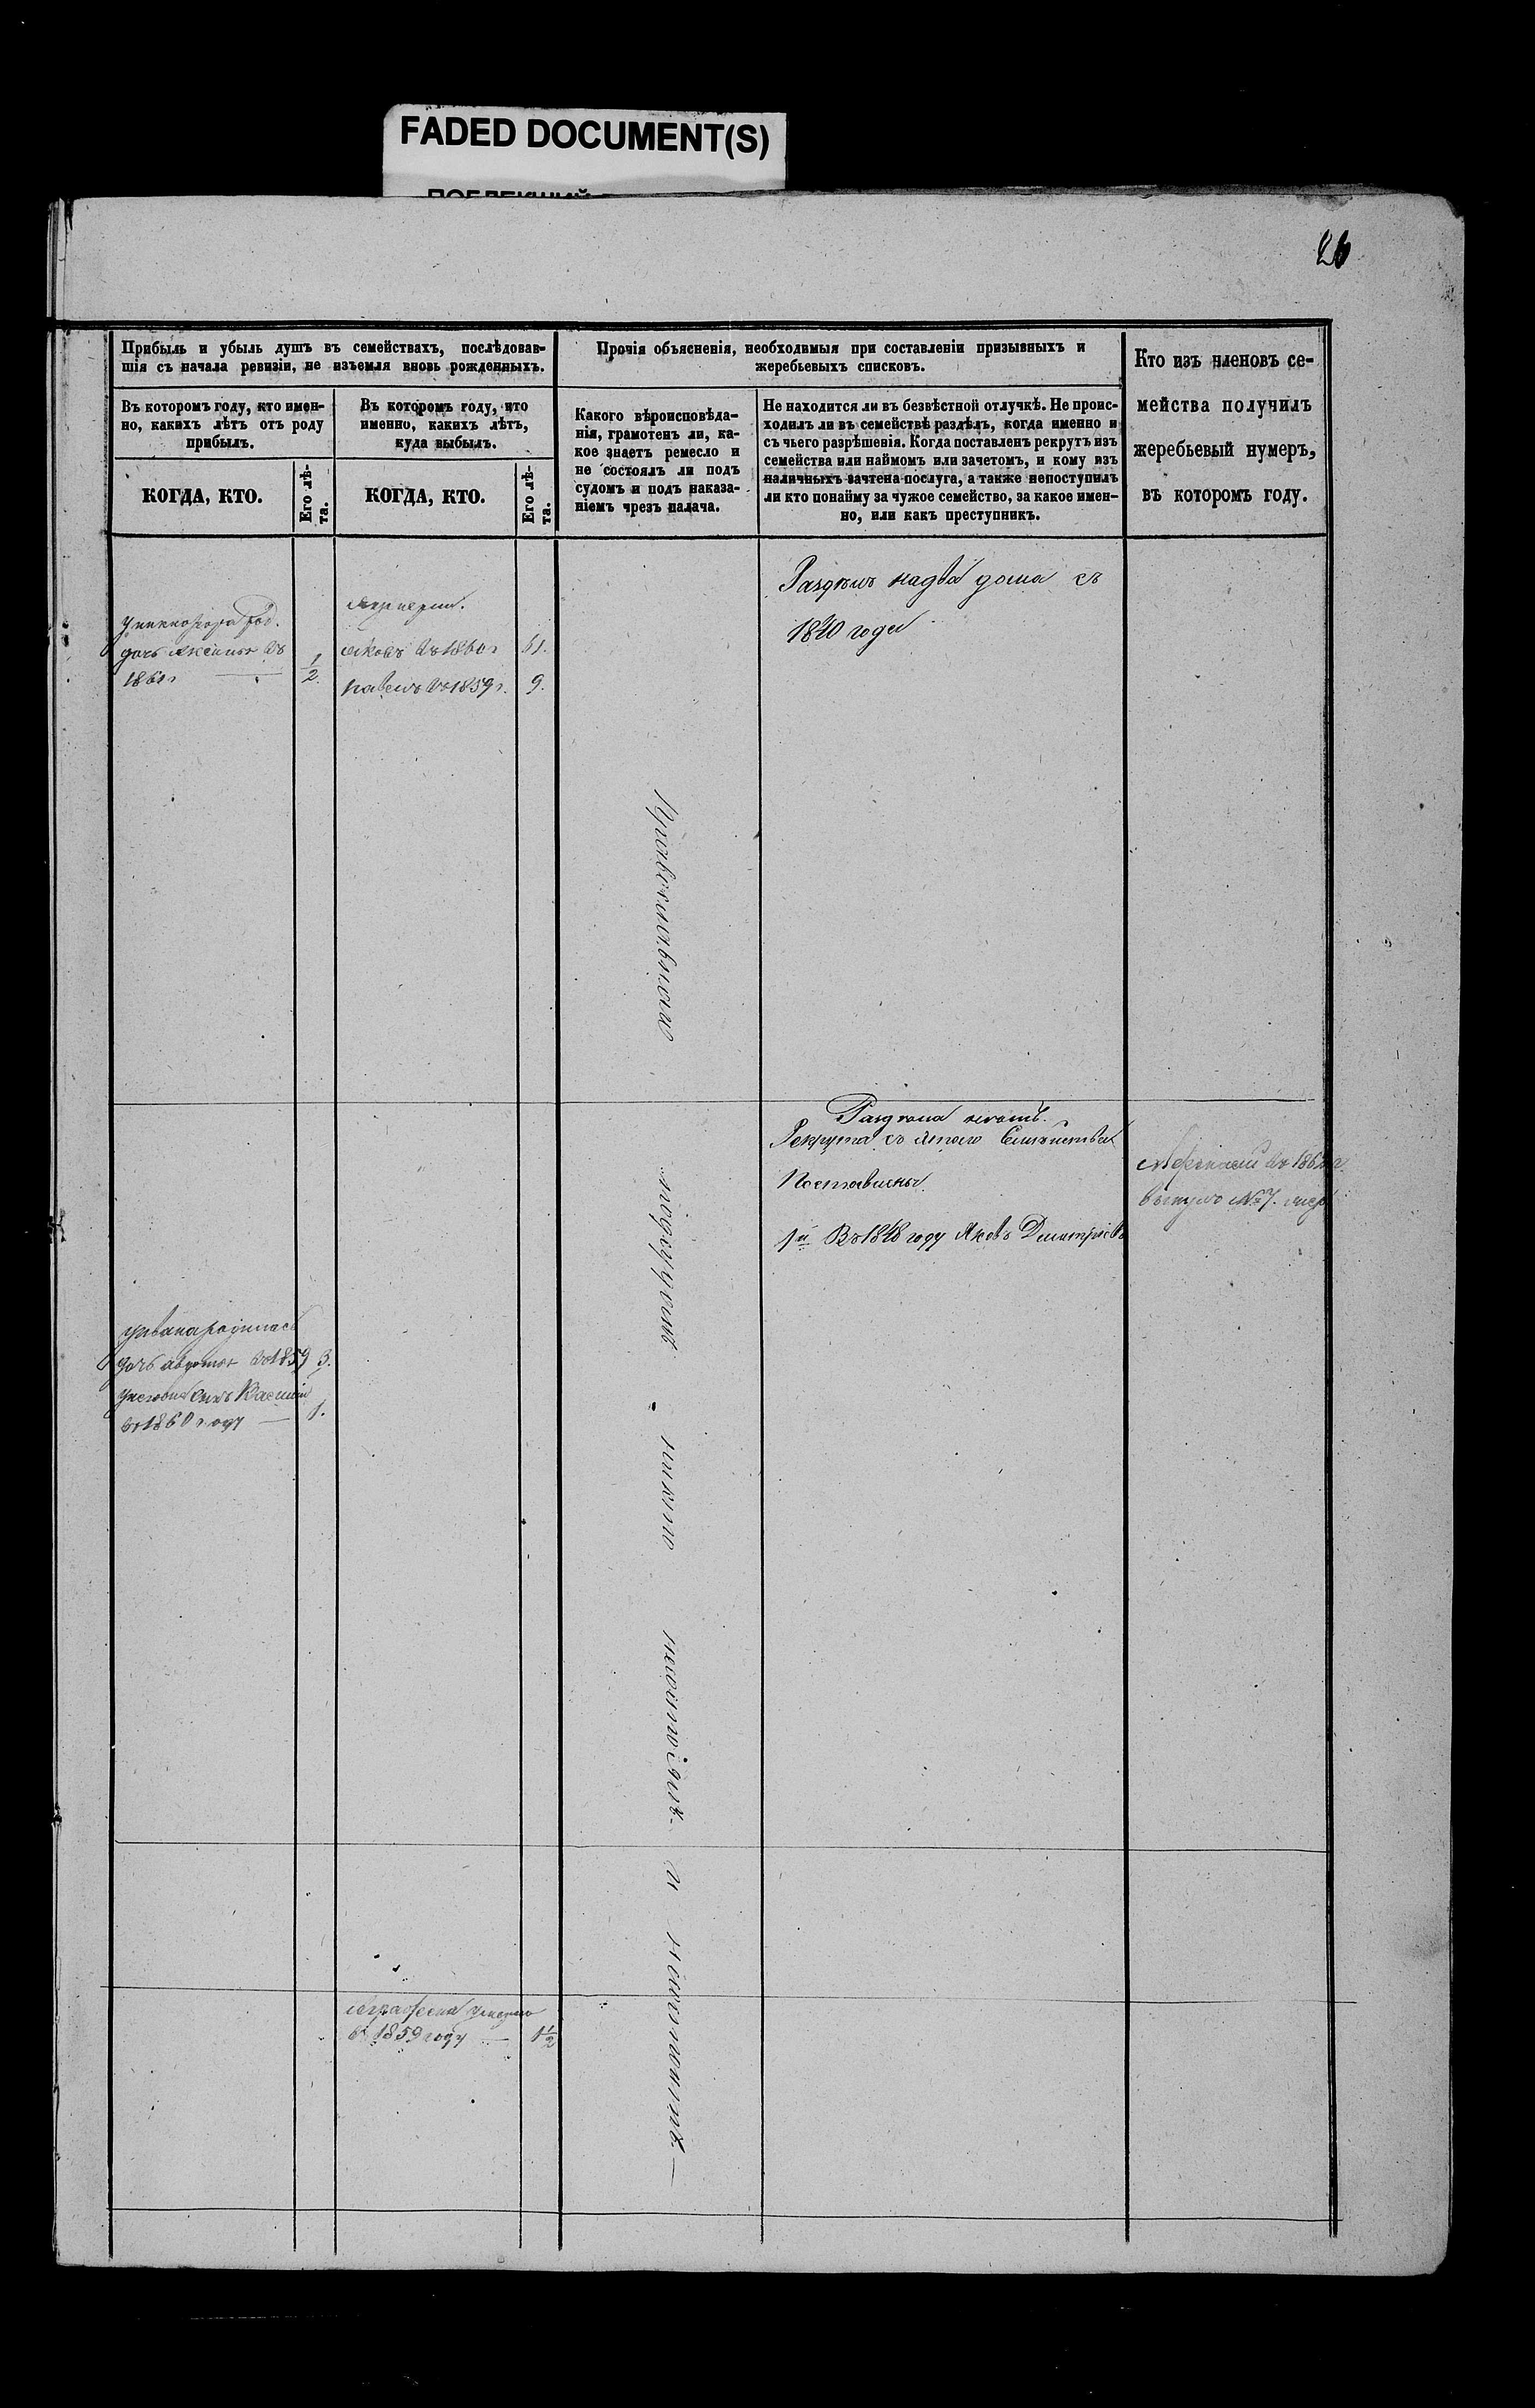 FADED DOCUMENT(S)
26
Прибыль и убыль душъ въ семействахъ, послѣдовав-
шія съ начала ревизіи, не изъемля вновь рожденныхъ.
Въ которомъ году, кто имен-
но, какихъ лѣтъ отъ роду
прибылъ.
КОГДА, КТО.
Его лѣ-
та.
Въ которомъ году, кто
именно, какихъ лѣтъ,
куда выбылъ.
КОГДА, КТО.
Его лѣ-
та.
Прочія объясненія, необходимыя при составленіи призывныхъ и
жеребьевыхъ списковъ.
Какого вѣроисповѣда-
нія, грамотенъ ли, ка-
кое знаетъ ремесло и
не состоялъ ли подъ
судомъ и подъ наказа-
ніемъ чрезъ палача.
Не находится ли въ безвѣстной отлучкѣ. Не проис-
ходилъ ли въ семействѣ раздѣлъ, когда именно и
съ чьего разрѣшенія. Когда поставленъ рекрутъ изъ
семейства или наймомъ или зачетомъ, и кому изъ
наличныхъ зачтена послуга, а также непоступилъ
ли кто понайму за чужое семейство, за какое имен-
но, или какъ преступникъ.
Кто изъ членовъ се-
мейства получилъ
жеребьевый нумеръ,
въ которомъ году.
уникифора род.
дочь Аксинья въ
1861 г
1/2.
Яковъ въ 1860 г 61.
павелъ въ 1859 г. 9.
Раздѣлъ надва дома съ
1840 года
Православнаго
Рекрута съ этого Семейства
Поставлены
1й Въ 1848 году Яковъ Дмитріевъ
№ 7.
уивана родилась
дочь авдотья въ 1859 3.
сынъ Василій
въ 1860 году — 1.
никто
и
Аграфена умерла
въ 1859 году — 1 1/2